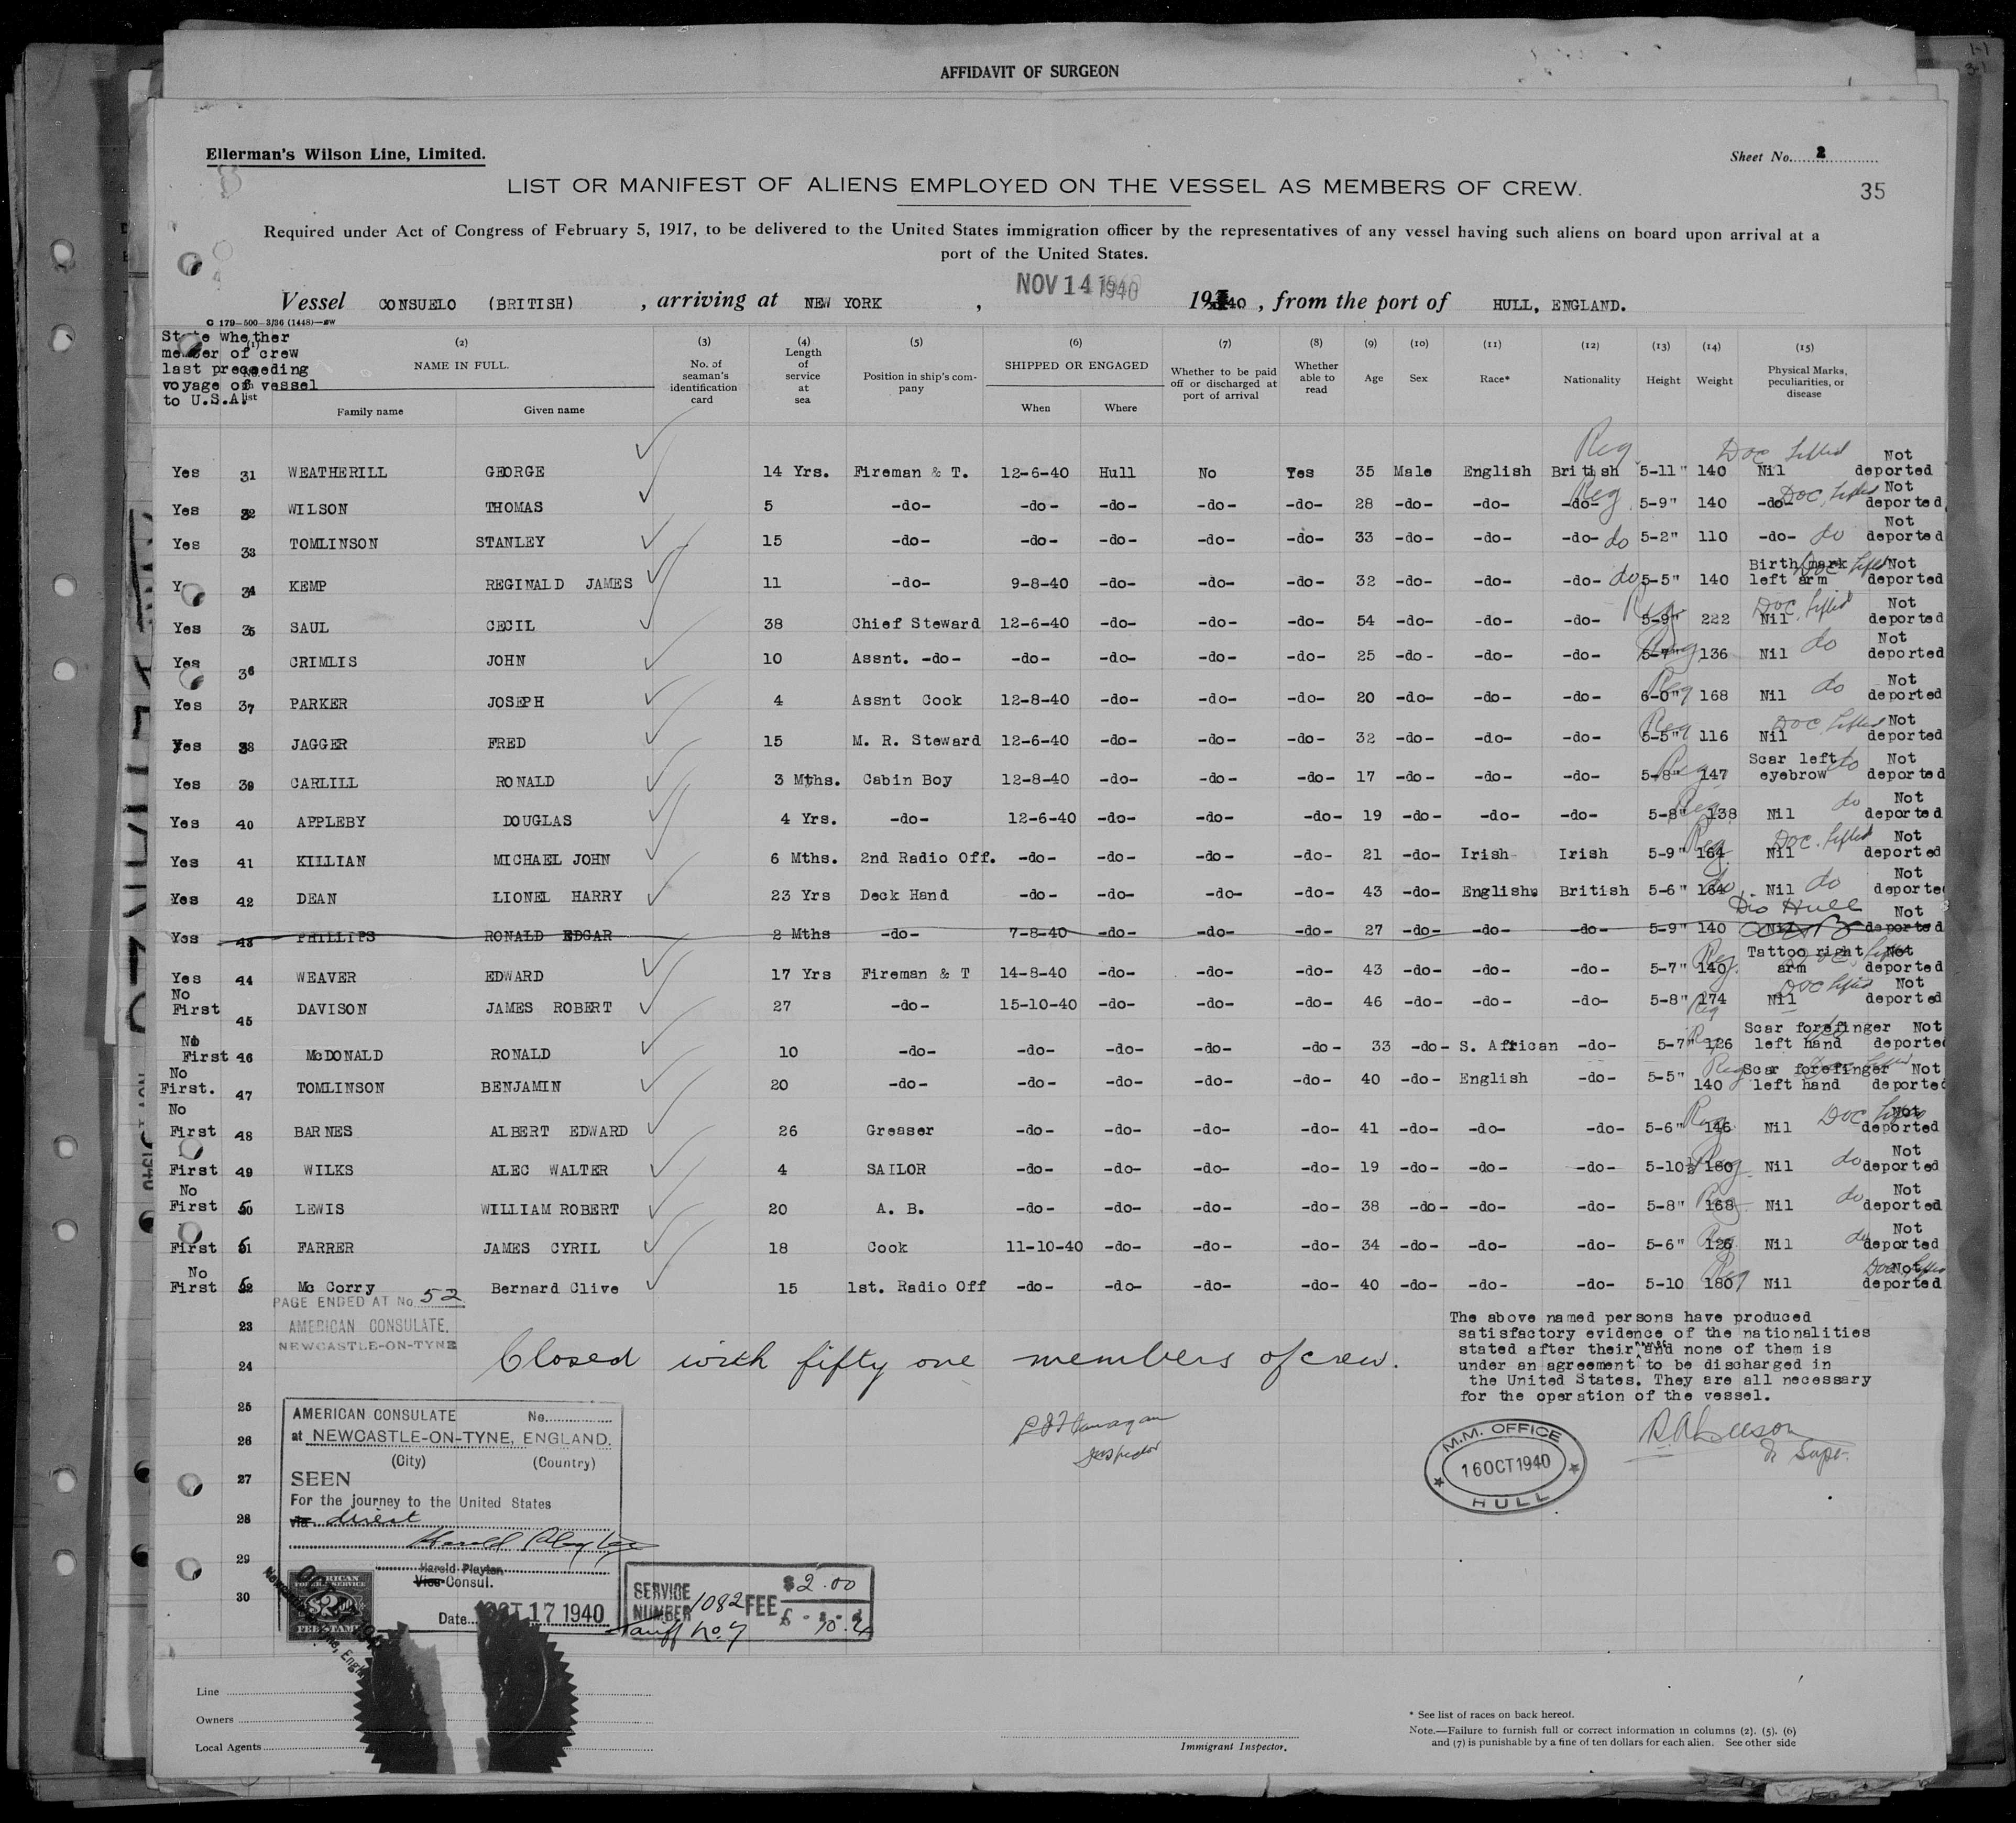 AFFIDAVIT OF SURGEON
Ellerman's Wilson Line, Limited.
Sheet No. 2
LIST OR MANIFEST OF ALIENS EMPLOYED ON THE VESSEL AS MEMBERS OF CREW.
35
Required under Act of Congress of February 5, 1917, to be delivered to the United States immigration officer by the representatives of any vessel having such aliens on board upon arrival at a
port of the United States.
Vessel CONSUELO (BRITISH), arriving at NEW YORK, NOV 14 1940 1940, from the port of HULL, ENGLAND.
G 179-500-3/36 (1448)
State whether member of crew last preceeding voyage of vessel to U.S.A.
(2) NAME IN FULL. Family name Given name
(3) No. of seaman's identification card
(4) Length of service at sea
(5) Position in ship's company
(6) SHIPPED OR ENGAGED When Where
(7) Whether to be paid off or discharged at port of arrival
(8) Whether able to read
(9) Age
(10) Sex
(11) Race*
(12) Nationality
(13) Height
(14) Weight
(15) Physical Marks, peculiarities, or disease
Yes 31 WEATHERILL GEORGE 14 Yrs. Fireman & T. 12-6-40 Hull No Yes 35 Male English British Reg 5-11" 140 Nil Doc Lifted Not deported
Yes 32 WILSON THOMAS 5 -do- -do- -do- -do- -do- 28 -do- -do- -do- Reg 5-9" 140 -do- Doc Lifted Not deported
Yes 33 TOMLINSON STANLEY 15 -do- -do- -do- -do- -do- 33 -do- -do- -do- do 5-2" 110 -do- do Not deported
Y 34 KEMP REGINALD JAMES 11 -do- 9-8-40 -do- -do- -do- 32 -do- -do- -do- do 5-5" 140 Birth mark left arm Doc Lifted Not deported
Yes 35 SAUL CECIL 38 Chief Steward 12-6-40 -do- -do- -do- 54 -do- -do- -do- Reg 5-9" 222 Nil Doc Lifted Not deported
Yes 36 CRIMLIS JOHN 10 Assnt. -do- -do- -do- -do- -do- 25 -do- -do- -do- Reg 5-7" 136 Nil do Not deported
Yes 37 PARKER JOSEPH 4 Assnt Cook 12-8-40 -do- -do- -do- 20 -do- -do- -do- Reg 6-0" 168 Nil do Not deported
Yes 38 JAGGER FRED 15 M. R. Steward 12-6-40 -do- -do- -do- 32 -do- -do- -do- Reg 5-5" 116 Nil Doc Lifted Not deported
Yes 39 CARLILL RONALD 3 Mths. Cabin Boy 12-8-40 -do- -do- -do- 17 -do- -do- -do- Reg 5-8" 147 Scar left eyebrow do Not deported
Yes 40 APPLEBY DOUGLAS 4 Yrs. -do- 12-6-40 -do- -do- -do- 19 -do- -do- -do- Reg 5-8" 138 Nil do Not deported
Yes 41 KILLIAN MICHAEL JOHN 6 Mths. 2nd Radio Off. -do- -do- -do- -do- 21 -do- Irish Irish Reg 5-9" 164 Nil Doc. Lifted Not deported
Yes 42 DEAN LIONEL HARRY 23 Yrs Deck Hand -do- -do- -do- -do- 43 -do- English. British 5-6" 164 do Nil do Not deported
Yes 43 PHILLIPS RONALD EDGAR 2 Mths -do- 7-8-40 -do- -do- -do- 27 -do- -do- -do- 5-9" 140 Nil Dis Hull Not deported
Yes 44 WEAVER EDWARD 17 Yrs Fireman & T 14-8-40 -do- -do- -do- 43 -do- -do- -do- 5-7" 140 Reg. Tattoo right arm Not deported
No First 45 DAVISON JAMES ROBERT 27 -do- 15-10-40 -do- -do- -do- 46 -do- -do- -do- 5-8" 174 Reg Nil Doc Lifted Not deported
No First 46 McDONALD RONALD 10 -do- -do- -do- -do- -do- 33 -do- S. African -do- 5-7" 126 Reg Scar forefinger left hand do Not deported
No First. 47 TOMLINSON BENJAMIN 20 -do- -do- -do- -do- -do- 40 -do- English -do- 5-5" 140 Reg Scar forefinger left hand Doc Lifted Not deported
No First 48 BARNES ALBERT EDWARD 26 Greaser -do- -do- -do- -do- 41 -do- -do- -do- 5-6" 146 Reg Nil Doc Lifted Not deported
First 49 WILKS ALEC WALTER 4 SAILOR -do- -do- -do- -do- 19 -do- -do- -do- 5-10½ 180 Reg Nil do Not deported
No First 50 LEWIS WILLIAM ROBERT 20 A. B. -do- -do- -do- -do- 38 -do- -do- -do- 5-8" 168 Reg Nil do Not deported
First 51 FARRER JAMES CYRIL 18 Cook 11-10-40 -do- -do- -do- 34 -do- -do- -do- 5-6" 126 Reg Nil do Not deported
No First 52 Mc Corry Bernard Clive 15 1st. Radio Off -do- -do- -do- -do- 40 -do- -do- -do- 5-10 180 Reg Nil Doc Lifted Not deported
PAGE ENDED AT No. 52
23 AMERICAN CONSULATE,
NEWCASTLE-ON-TYNE
24 Closed with fifty one members of crew.
The above named persons have produced
satisfactory evidence of the nationalities
stated after their and none of them is
under an agreement to be discharged in
the United States. They are all necessary
for the operation of the vessel.
25
26
27
28
29
30
AMERICAN CONSULATE No.
at NEWCASTLE-ON-TYNE, ENGLAND.
(City) (Country)
SEEN
For the journey to the United States
via direct
Harold Playter
Harold Playter
Vice Consul.
Date OCT 17 1940
SERVICE NUMBER 1082 FEE $2.00
Tariff No. 7
Inspector
M.M. OFFICE
16 OCT 1940
HULL
Supt.
Line
Owners
Local Agents
Immigrant Inspector.
* See list of races on back hereof.
Note.—Failure to furnish full or correct information in columns (2), (5), (6)
and (7) is punishable by a fine of ten dollars for each alien. See other side